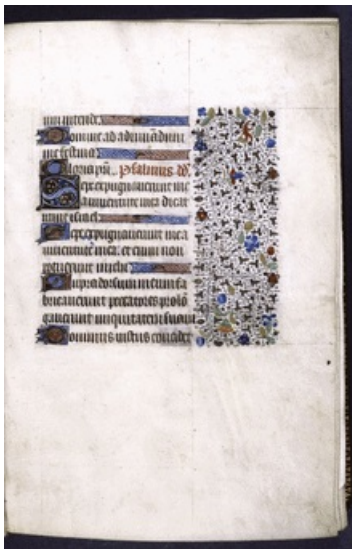 um intende
Domine ad adiuvandum
me festina
Gloria pri. Psalmus dd.
Sepe expugnaverunt me
a iuventute mea dicat
nunc israel
Sepe expugnaverunt me a
iuventute mea. et enim non
potuerunt michi
Supra dorsum meum fa
bricaverunt peccatores prolon
gaverunt iniquitatem suam
Dominus iustus concidet